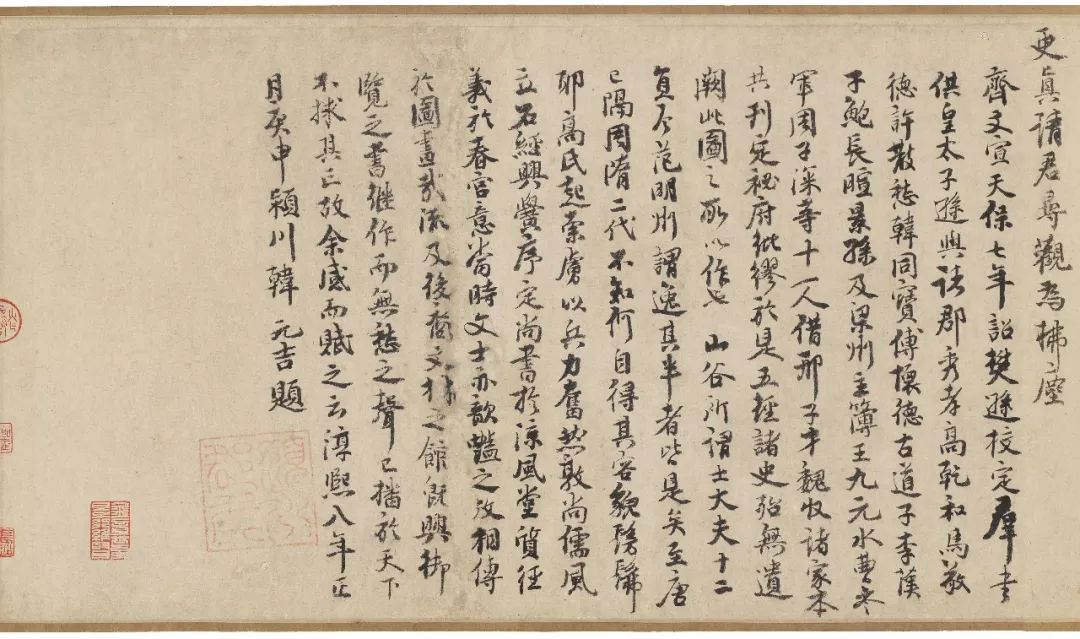 更真請君尋觀為拂塵
齊文宣天保七年詔樊遜校定羣書
供皇太子遜與諸郡秀孝高乾和馬敬
德許散愁韓同寶傅懷德古道子李漢
子鮑長暄景孫及梁州主簿王九元水曹參
軍周子深等十一人借邢子才魏收諸家本
共刊定秘府紕繆於是五經諸史殆無遺
闕此圖之所以作也 山谷所謂士大夫十二
員今范明州謂逸其半者皆是矣至唐
已隔周隋二代不知何自得其容貌髣髴
耶高氏起索虜以兵力奮然敦尚儒風
立石經興黌序定尚書於涼風堂質經
義於春官意當時文士亦歆豔之故相傳
於圖畫哉流及後裔文林之館既興御
覽之書繼作而無愁之聲已播於天下
不捄其亡故余感而賦之云淳熙八年正
月庚申潁川韓 元吉題